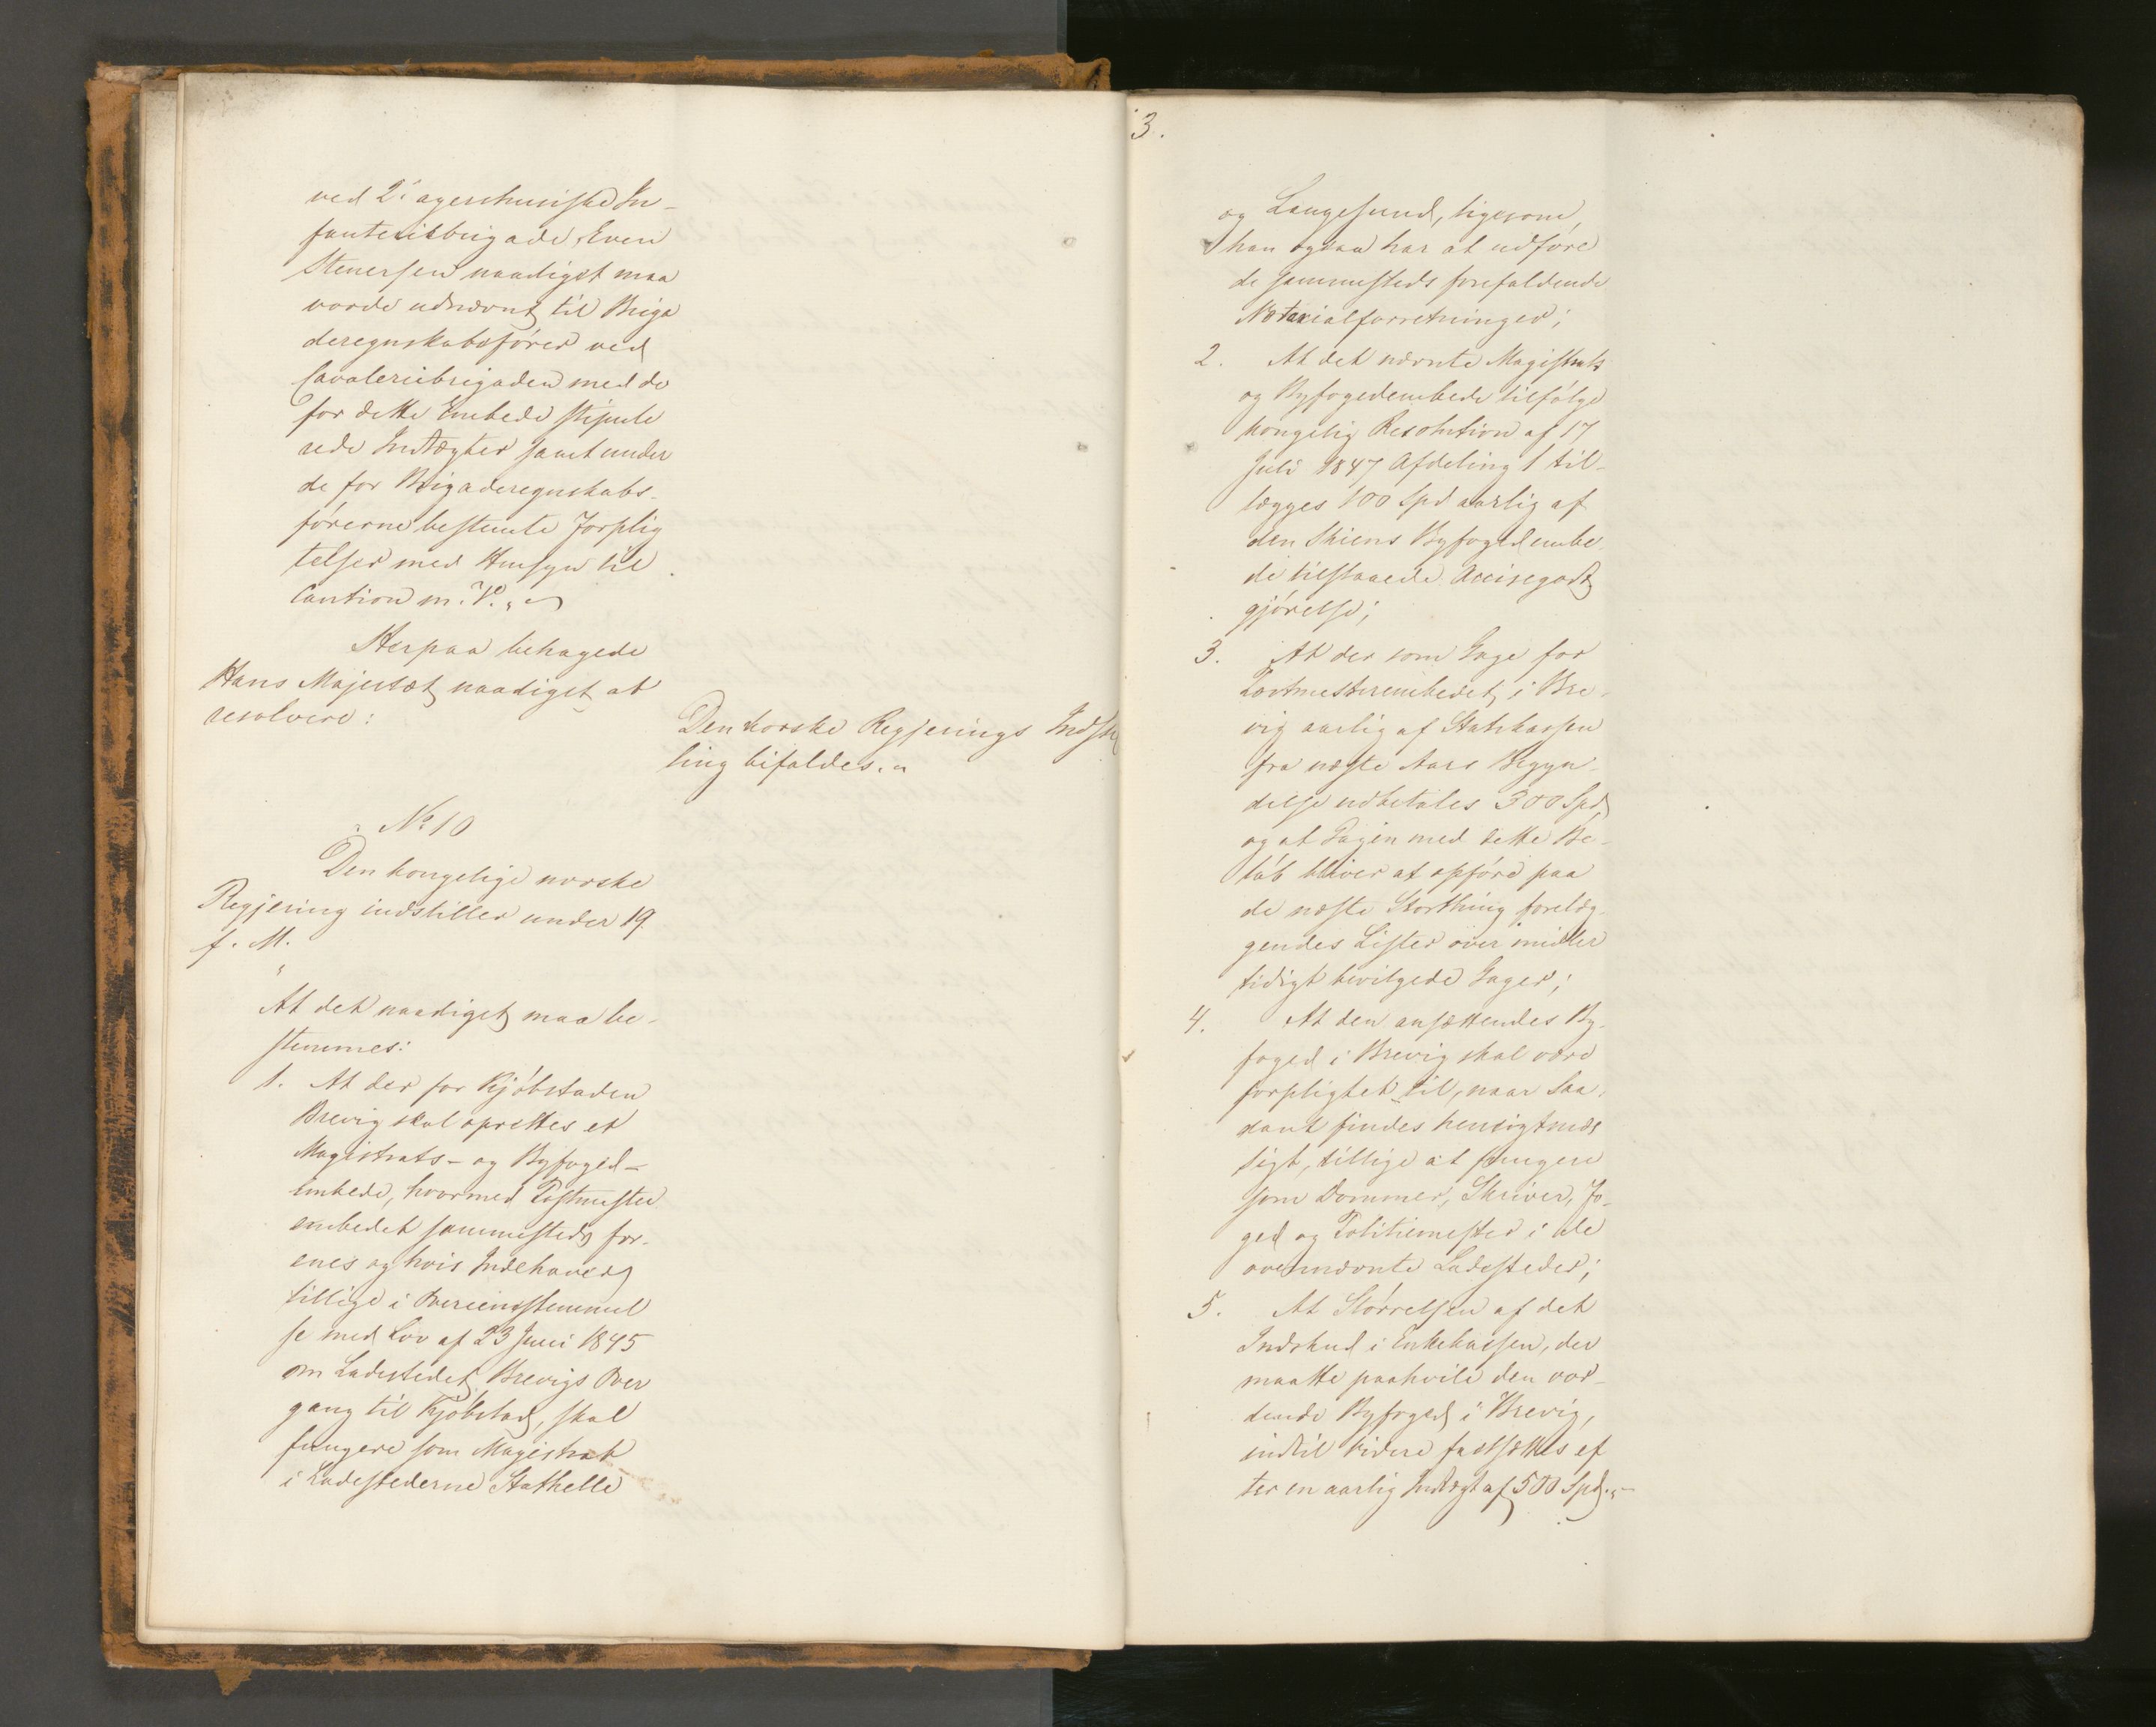 ved 2. agershusiske In-
fanteribrigade, Even
Stenersen naadigst maa
vorde udnævnt til Briga
deregnskabsfører ved
Cavaleriebrigaden med de
for dette Embede stipule
rede Indtægter samt under
de for Brigaderegnskabs-
førerne bestemte Forplig
telser med Hensyn til
Caution m. V. "
Herpaa behagede
Hans Majestæt naadigst at
resolvere:
Den norske Regjerings Indstil
ling bifaldes. "
No 10
Den kongelige norske
Regjering indstiller under 19
f. M.
"
At det naadigst maa be-
stemmes:
1. At der for Kjøbstaden
Brevig skal oprettes et
Magistrats- og Byfoged-
embede, hvormed Postmester
embedet sammesteds for-
enes og hvis Indehaver
tillige i Overeensstemmel
se med Lov af 23 Juni 1845
om Ladestedet Brevigs Over
gang til Kjøbstad, skal
fungere som Magistrat
i Ladestederne Stathelle
3.
og Langesund, ligesom
han ogsaa har at udføre
de sammesteds forefaldende
Notarialforretninger;
2. At det nævnte Magistrats
og Byfogedembede tilfølge
kongelig Resolution af 17
Juli 1847 Afdeling 1 til-
lægges 100 Spd aarlig af
den Skiens Byfogedembe
de tilstaaede Accisegodt
gjørelse;
3. At der som Gage for
Postmesterembedet i Bre-
vig aarlig af Statskassen
fra næste Aars Begyn-
delse udbetales 300 Spd,
og at Gagen med dette Be-
løb bliver at opføre paa
de næste Storthing forelæg-
gendes Lister over midler
tidigt bevilgede Gager;
4. At den ansættendes By-
foged i Brevig skal være
forpligtet til, naar saa-
dant findes hensigtmæs
sigt, tillige at fungere
som Dommer, Skriver, Fo-
ged og Politiemester i de
ovennævnte Ladesteder;
5. At Størrelsen af det
Indskud i Enkekassen, der
maatte paahvile den vor-
dende Byfoged i Brevig,
indtil videre fastsættes ef
ter en aarlig Indtægt af 500 Spd. "